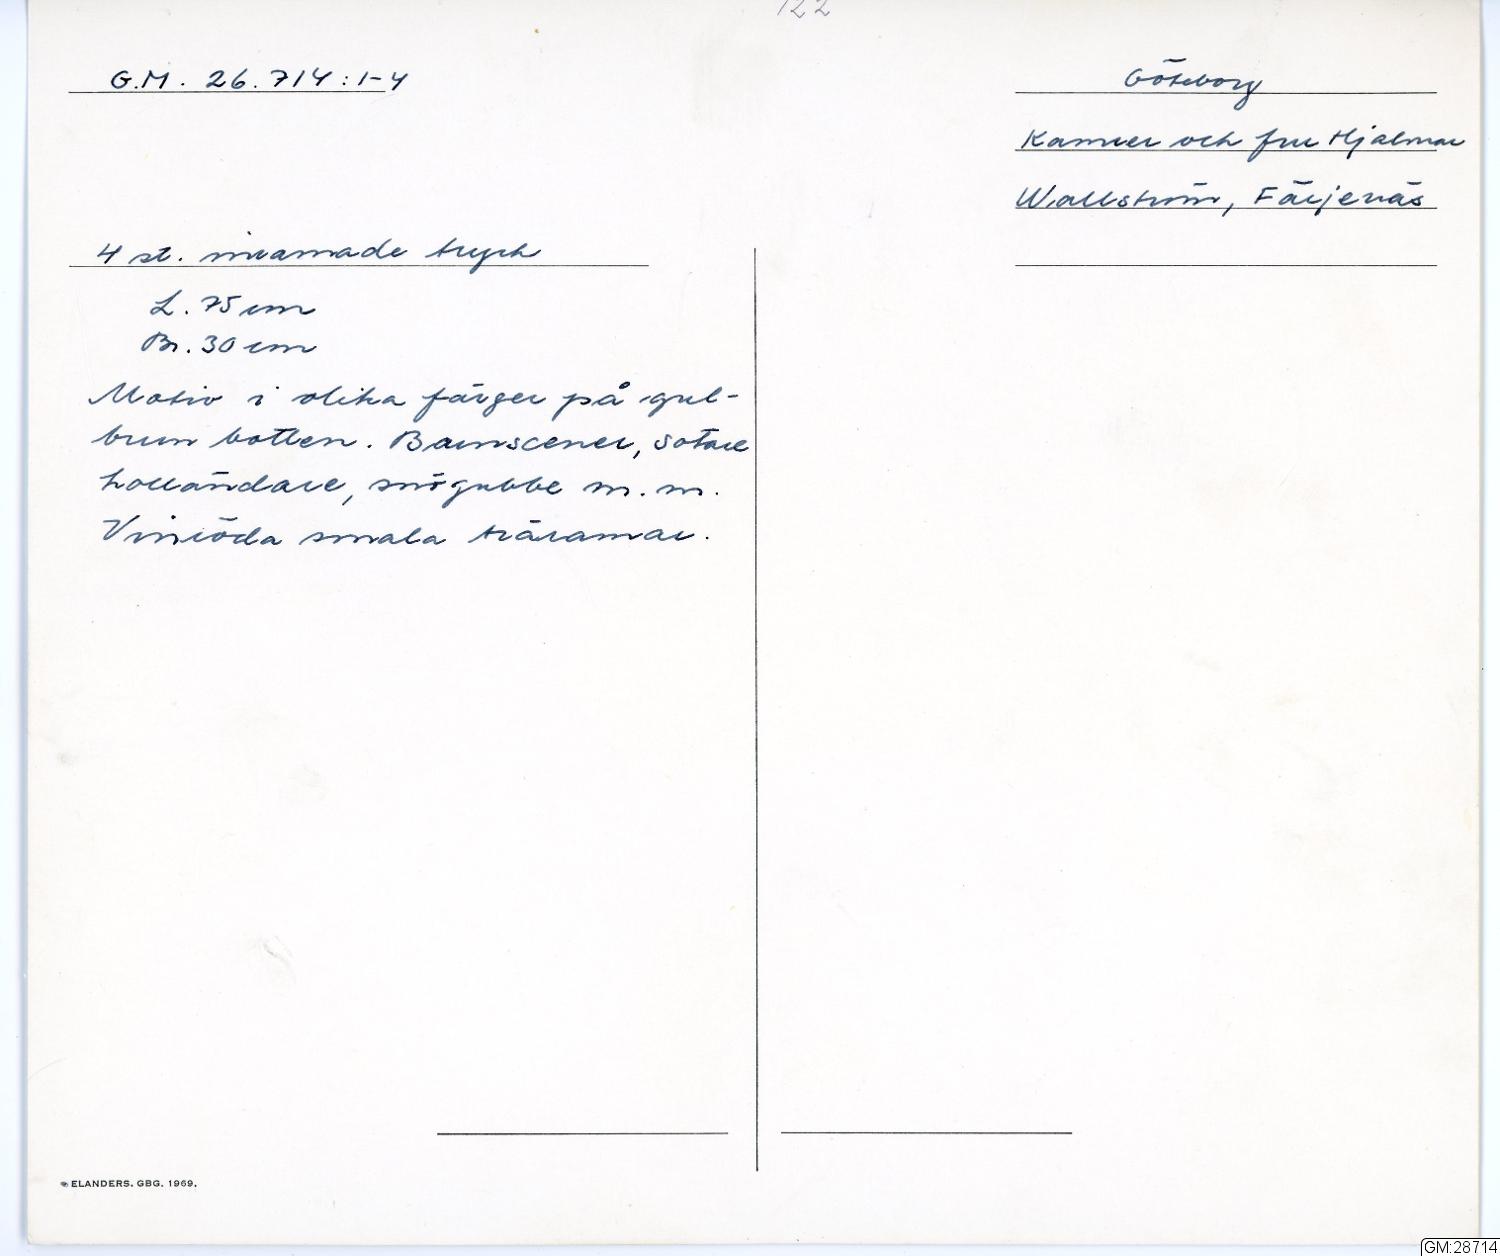 122
G.M. 26.714:1-4
Göteborg
Kamrer och fru Hjalmar
Wallström, Färjenäs
4 st. inramade tryck
L. 75 cm
Br. 30 cm
Motiv i olika färger på gul-
brun botten. Barnscener, sotare
holländare, snögubbe m.m.
Vinröda smala träramar.
ELANDERS. GBG. 1969.
GM:28714